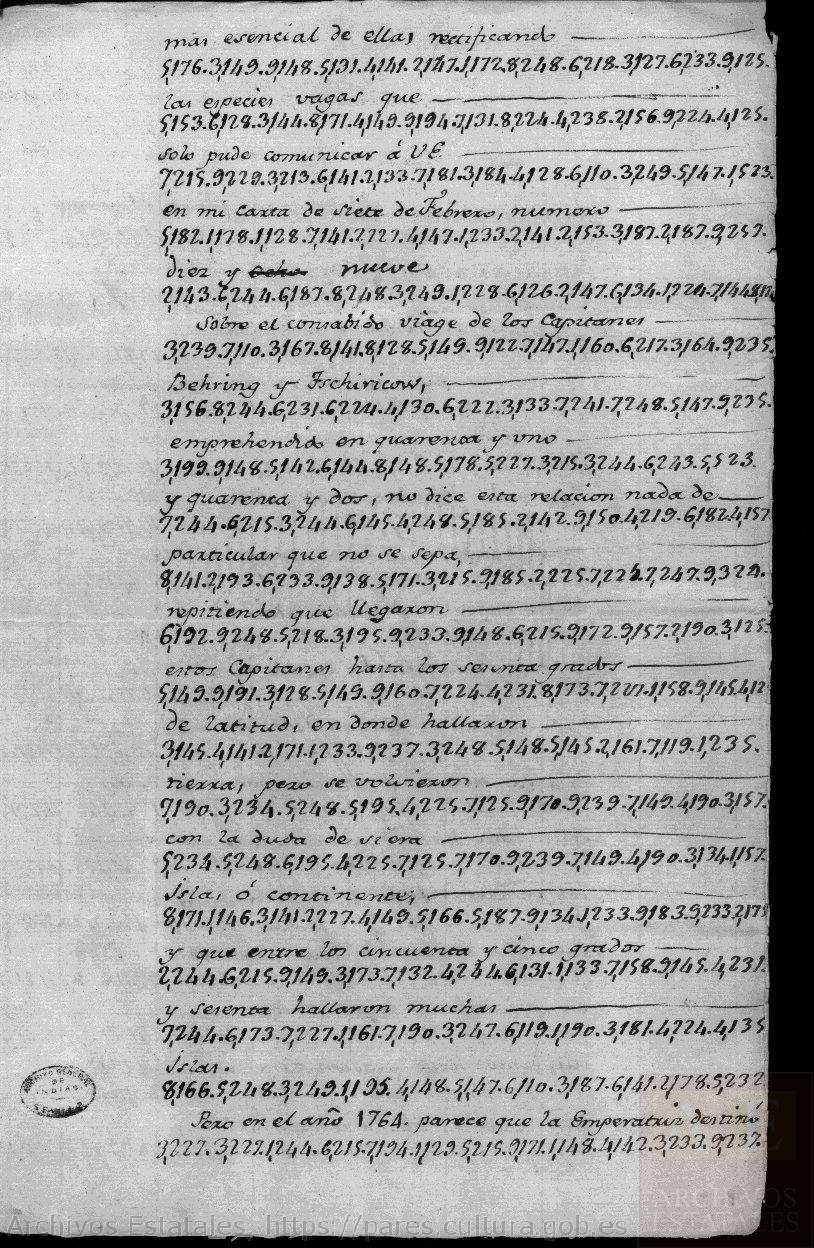 mas esencial de ellas rectificando
5176.3149.9148.5131.4141.2147.1172.8248.6218.3127.6233.9125.
las especies vagas que
5153.6128.3144.8171.4149.9194.7131.8224.4238.2156.9224.4125.
solo pude comunicar á VE.
7215.9229.3213.6141.2133.7181.3184.4128.6110.3249.5147.1523.
en mi carta de siete de Febrero, numero
5182.1178.1128.7141.2227.4147.1233.2141.2153.3187.2187.9257.
diez y ocho nueve
2143.6244.6187.8248.3249.1228.6126.2147.6134.1224.7144.8
Sobre el consabido viage de los Capitanes
3239.7110.3167.8141.8128.5149.9122.7147.1160.6217.3164.9235.
Behring y Tschiricow,
3156.8244.6231.6224.4130.6222.3133.7241.7248.5147.9235.
emprehendido en quarenta y uno
3199.9148.5142.6144.8148.5178.5227.3215.3244.6243.5523.
y quarenta y dos, no dice esta relacion nada de
7244.6215.3244.6145.4248.5185.2142.9150.4219.6182.4157
particular que no se sepa,
8141.2193.6233.9138.5171.3215.9185.2225.7224.7247.9324.
repitiendo que llegaron
6192.9248.5218.3195.9233.9148.6215.9172.9157.2190.3125.
estos Capitanes hasta los sesenta grados
5149.9191.3128.5149.9160.7224.4231.8173.7227.1158.9145.412
de latitud, en donde hallaron
3145.4141.2171.1233.9237.3248.5148.5145.2161.7119.1235.
tierra, pero se volvieron
7190.3234.5248.5195.4225.7125.9170.9239.7149.4190.3157.
con la duda de si era
5234.5248.6195.4225.7125.7170.9239.7149.4190.3134.1157.
Isla, ó continente;
8171.1146.3141.2227.4149.5166.5187.9134.1233.9183.9233.2175
y que entre los cincuenta y cinco grados
2244.6215.9149.3173.7132.4244.6131.1133.7158.9145.4231.
y sesenta hallaron muchas
7244.6173.7227.1161.7190.3247.6119.1190.3181.4224.4135
Islas.
8166.5248.3249.1195.4148.5147.6110.3187.6141.2178.5232
Pero en el año 1764. parece que la Emperatriz destinó
3227.3227.1244.6215.7194.1129.5215.9171.1148.4142.3233.9237.
ARCHIVO GENERAL
DE
INDIAS
SEVILLA
Archivos Estatales, https://pares.cultura.gob.es
ARCHIVOS
ESTATALES